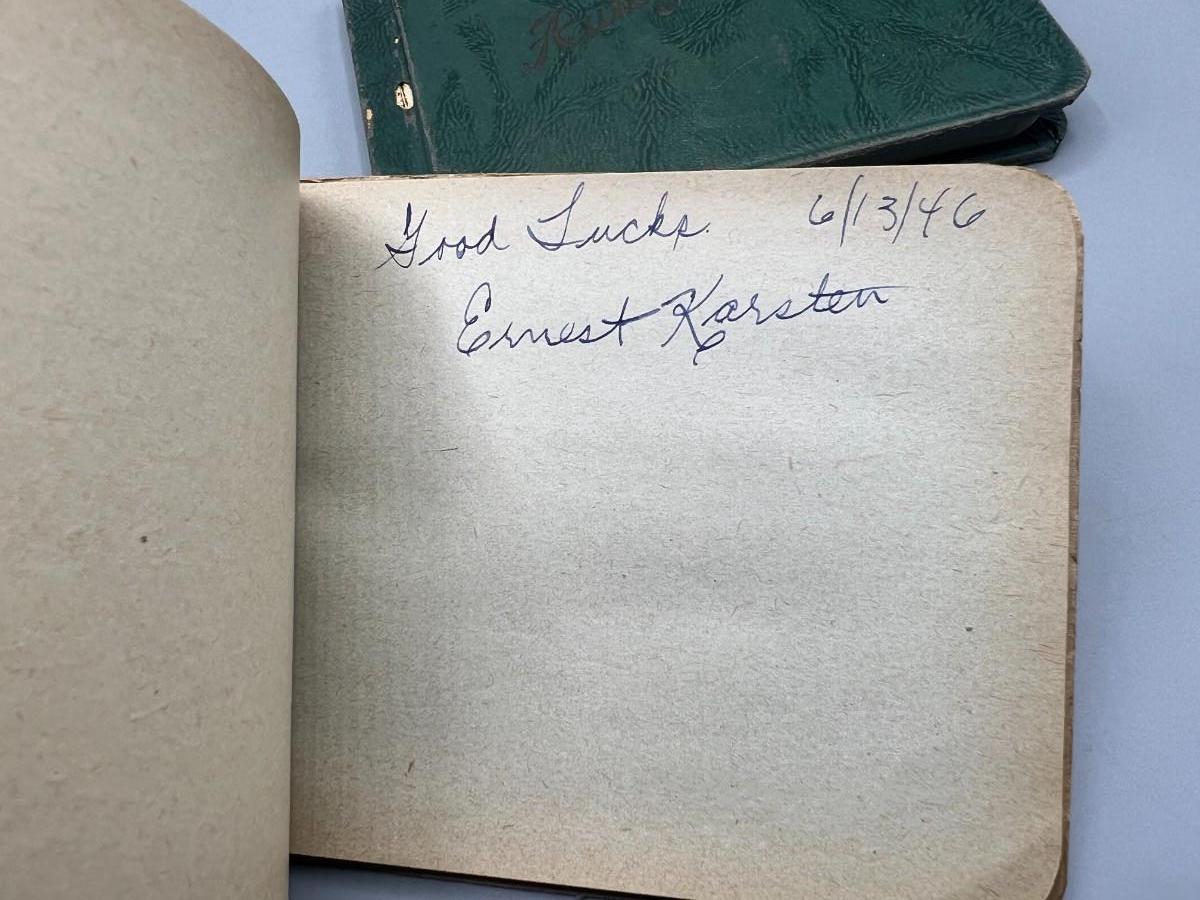 Good Lucks. 6/13/46
Ernest Karsten